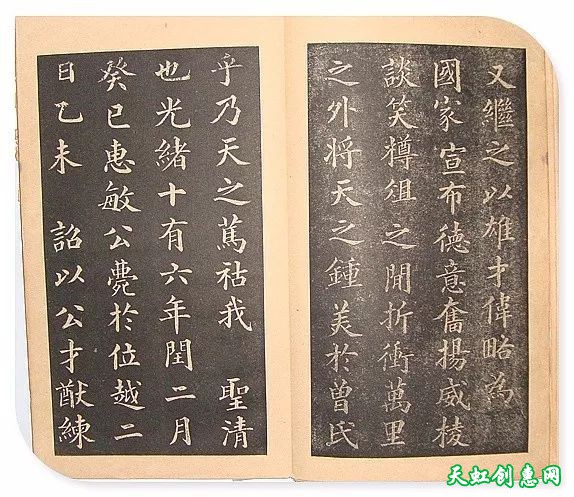 又繼之以雄才偉略為
國家宣布德意奮揚威棱
談笑樽俎之間折衝萬里
之外将天之鍾美於曾氏
乎乃天之篤祜我 聖清
也光緒十有六年閏二月
癸巳惠敏公薨於位越二
日乙未 詔以公才猷練
天虹创意网